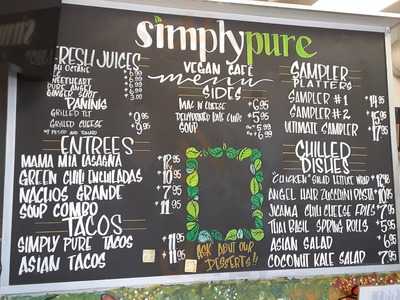 simply pure
VEGAN CAFÉ
menu
FRESH JUICES
OCTANE 6.95
6.95
SWEETHEART 6.95
PURE ANGEL 6.95
GINGER SHOT 3.00
PANINIS
GRILLED TLT 9.95
GRILLED CHEESE 8.95
W/ PESTO AND TOMATO
ENTREES
MAMA MIA LASAGNA 12.95
GREEN CHILI ENCHILADAS 10.95
NACHOS GRANDE 7.95
SOUP COMBO 11.95
TACOS
SIMPLY PURE TACOS 11.95
ASIAN TACOS 11.95
SIDES
MAC N CHEESE 6.95
DEHYDRATED KALE CHIPS 5.95
SOUP 5.95
6.99
ASK ABOUT OUR
DESSERTS!!
SAMPLER
PLATTERS
SAMPLER #1 14.95
SAMPLER #2 15.95
ULTIMATE SAMPLER 17.95
CHILLED
DISHES
"CHICKEN" SALAD LETTUCE WRAP 12.98
ANGEL HAIR ZUCCHINI PASTA 10.95
JICAMA CHILI CHEESE FRIES 7.95
THAI BASIL SPRING ROLLS 5.95
ASIAN SALAD 6.95
COCONUT KALE SALAD 7.95